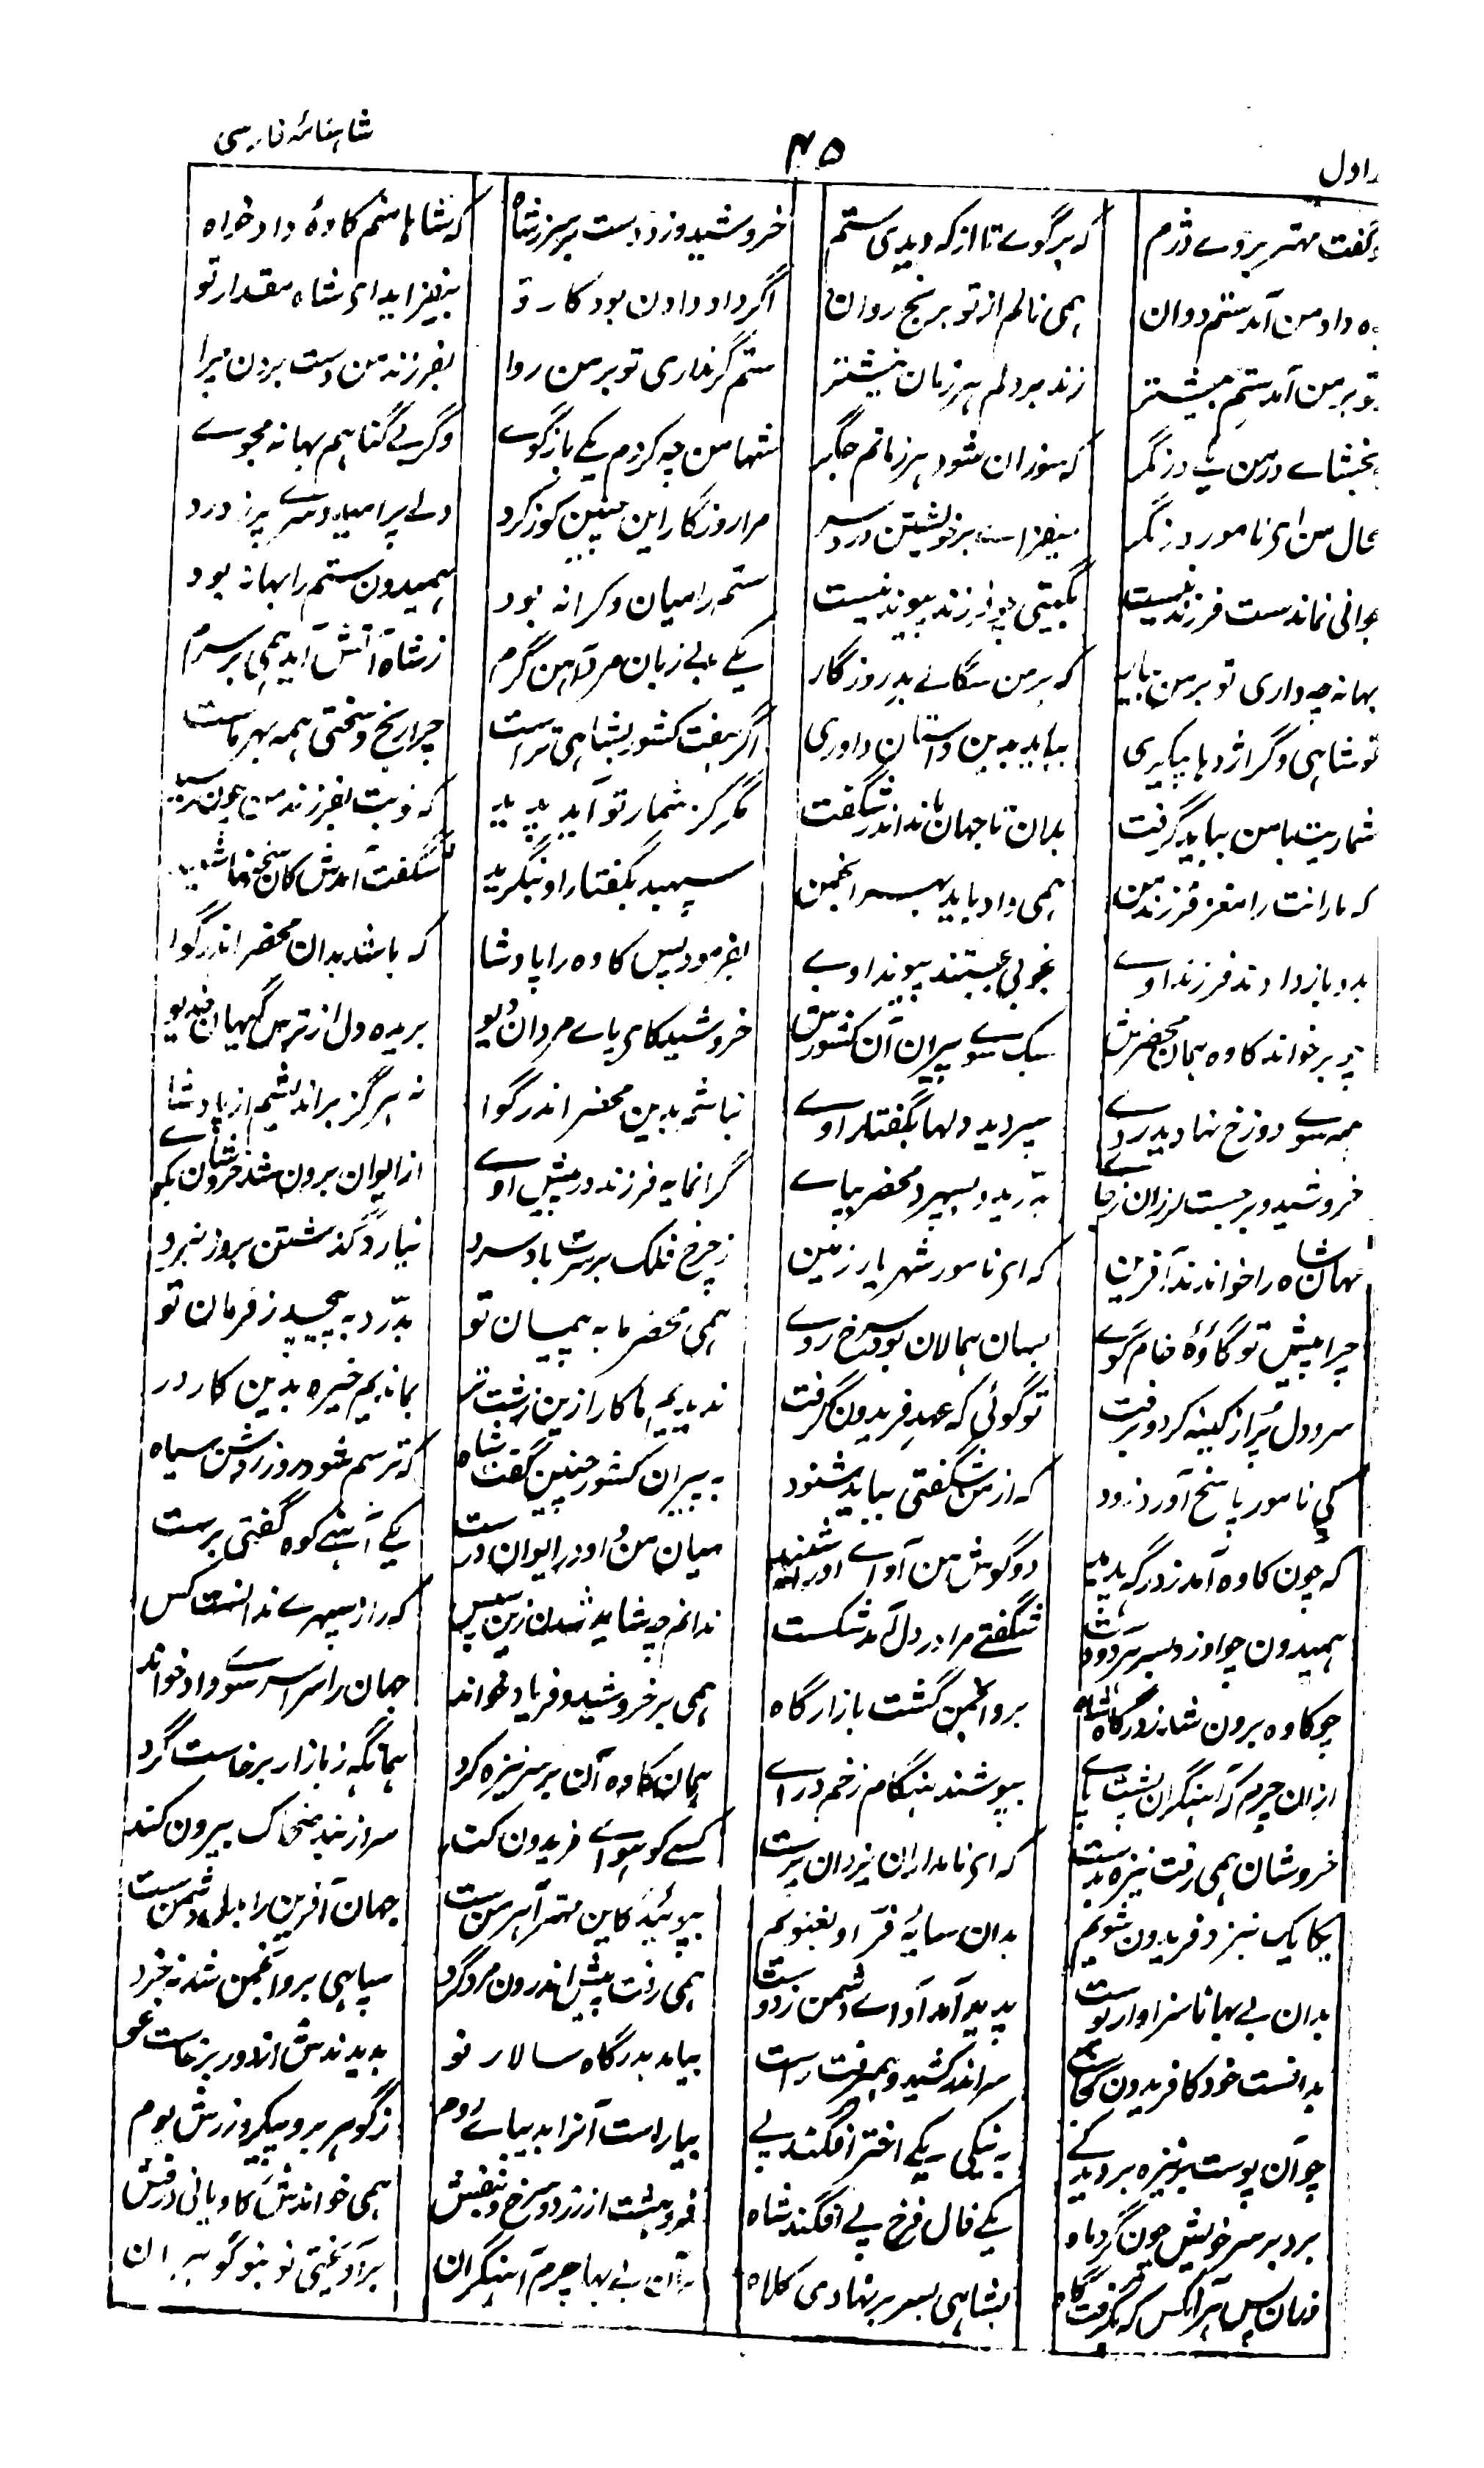 شاہنامۂ فارسی
۴۵
اول
گفت مہتر بروے دژم
کہ برگوے تا از کہ دیدی ستم
خروشید و زد دست بر سر ز شاہ
کہ شاہا منم کاوۂ داد خواہ
داد من آمدستم دوان
ہمی نالم از تو برنج روان
اگر داد دادن بود کار تو
بیفزاید ای شاہ مقدار تو
تو بر من آمد ستم بیشتر
زند بر دلم ہر زمان نیشتر
ستم گر نداری تو بر من روا
بفرزند من دست بردن چرا
بخشاے در من یکے در نگر
کہ سوزان شود ہر زمانم جگر
شہا من چہ کردم یکے باز گوے
وگر بے گناہم بہانہ مجوے
بحال من ای نامور در نگر
میفزاے بر خویشتن درد سر
مرا روزگار این چنین کوز کرد
دلے پر امید و سرے پر ز درد
جوانی نماندست فرزند نیست
بگیتی چو فرزند پیوند نیست
ستم را میان و کرانہ بود
ہمیدون ستم را بہانہ بود
بہانہ چہ داری تو بر من بیار
کہ بر من سگالے بد روزگار
یکے بے زبان مرد آہن گرم
ز شاہ آتش آید ہمی بر سرم
تو شاہی وگر اژدہا پیکری
بباید بدین داستان داوری
اگر ہفت کشور بشاہی تراست
چرا رنج و سختی ہمہ بہر ماست
شماریت با من بباید گرفت
بدان تا جہان ماند اندر شگفت
مگر کز شمار تو آید پدید
کہ نوبت بفرزند من چون رسید
کہ مارانت را مغز فرزند من
ہمی داد باید بہر انجمن
سپہبد بگفتار او بنگرید
شگفت آمدش کان سخنہا شنید
بدو باز دادند فرزند اوے
بخوبی بجستند پیوند اوے
بفرمود پس کاوہ را پادشا
کہ باشد بدان محضر اندر گوا
چو برخواند کاوہ ہمان محضرش
سبک سوے پیران آن کشورش
خروشید کاے پاے مردان دیو
بریدہ دل از ترس گیہان خدیو
ہمہ سوے دوزخ نہادید روے
سپردید دلہا بگفتار اوے
نباشم بدین محضر اندر گوا
نہ ہرگز بر اندیشم از پادشا
خروشید و برجست لرزان ز جاے
بدرید و بسپرد محضر بپاے
گرانمایہ فرزند در پیش اوے
از ایوان برون شد خروشان بکوے
مہان شاہ را خواندند آفرین
کہ ای نامور شہریار زمین
ز چرخ فلک بر سرت باد سرد
نیارد گذشتن بروز نبرد
چرا پیش تو کاوۂ خام گوے
بسان ہمالان بود سرخ روے
ہمی محضر ما بہ پیمان تو
بدرد بہ پیچد ز فرمان تو
سر و دل پر از کینہ کرد و برفت
تو گوئی کہ عہد فریدون گرفت
ندیدیم ما کار ازین زشت تر
بماندیم خیرہ بدین کار در
کی نامور پاسخ آورد زود
کہ از من شگفتی بباید شنود
بہ پیران کشور چنین گفت شاہ
کہ ترسم شود روز روشن سیاہ
کہ چون کاوہ آمد ز درگہ پدید
دو گوش من آواے او را شنید
میان من و او در ایوان درست
یکے آہنے کوہ گفتی برست
ہمیدون چو او زد بسر بر دو دست
شگفتے مرا در دل آمد شکست
ندانم چہ شاید شدن زین سپس
کہ راز سپہرے ندانست کس
چو کاوہ برون شد ز درگاہ شاہ
برو انجمن گشت بازارگاہ
ہمی بر خروشید و فریاد خواند
جہان را سراسر سوے داد خواند
ازان چرم کاہنگران پشت پاے
بپوشند ہنگام زخم دراے
ہمان کاوہ آن بر سر نیزہ کرد
ہمانگہ ز بازار برخاست گرد
خروشان ہمی رفت نیزہ بدست
کہ ای نامداران یزدان پرست
کسے کو ہواے فریدون کند
سر از بند ضحاک بیرون کند
یکایک بنزد فریدون شویم
بدان سایۂ فرّ او بغنویم
بپوئید کاین مہتر آہرمن ست
جہان آفرین را بدل دشمن ست
بدان بے بہا ناسزاوار پوست
پدید آمد آواے دشمن ز دوست
ہمی رفت پیش اندرون مرد گرد
سپاہی برو انجمن شد نہ خرد
بدانست خود کافریدون کجاست
سر اندر کشید و ہمی رفت راست
بیامد بدرگاہ سالار نو
بدیدندش از دور برخاست غو
چو آن پوست بر نیزہ بر دید کے
بہ نیکی یکے اختر افگند پے
بیاراست آنرا بدیباے روم
ز گوہر برو پیکر و زرش بوم
بزد بر سر خویش چون گرد ماہ
یکے فال فرخ پے افگند شاہ
فروہشت از زرد و سرخ و بنفش
ہمی خواندش کاویانی درفش
ازان پس ہر آنکس کہ بگرفت گاہ
بشاہی بسر بر نہادی کلاہ
بران بے بہا چرم آہنگران
بر آویختی نو بنو گوہران